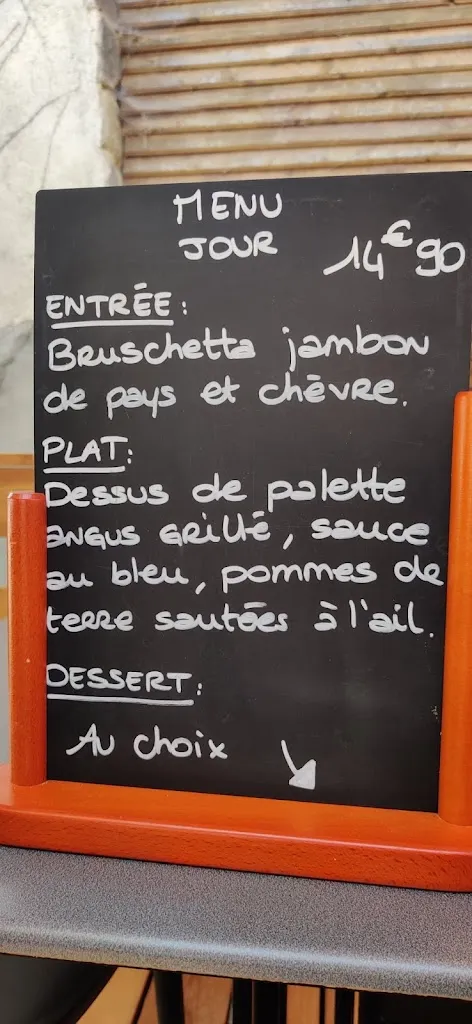 MENU
JOUR
14€90
ENTRÉE:
Bruschetta jambon
de pays et chèvre.
PLAT:
Dessus de palette
angus grillé, sauce
au bleu, pommes de
terre sautées à l'ail.
DESSERT:
Au choix